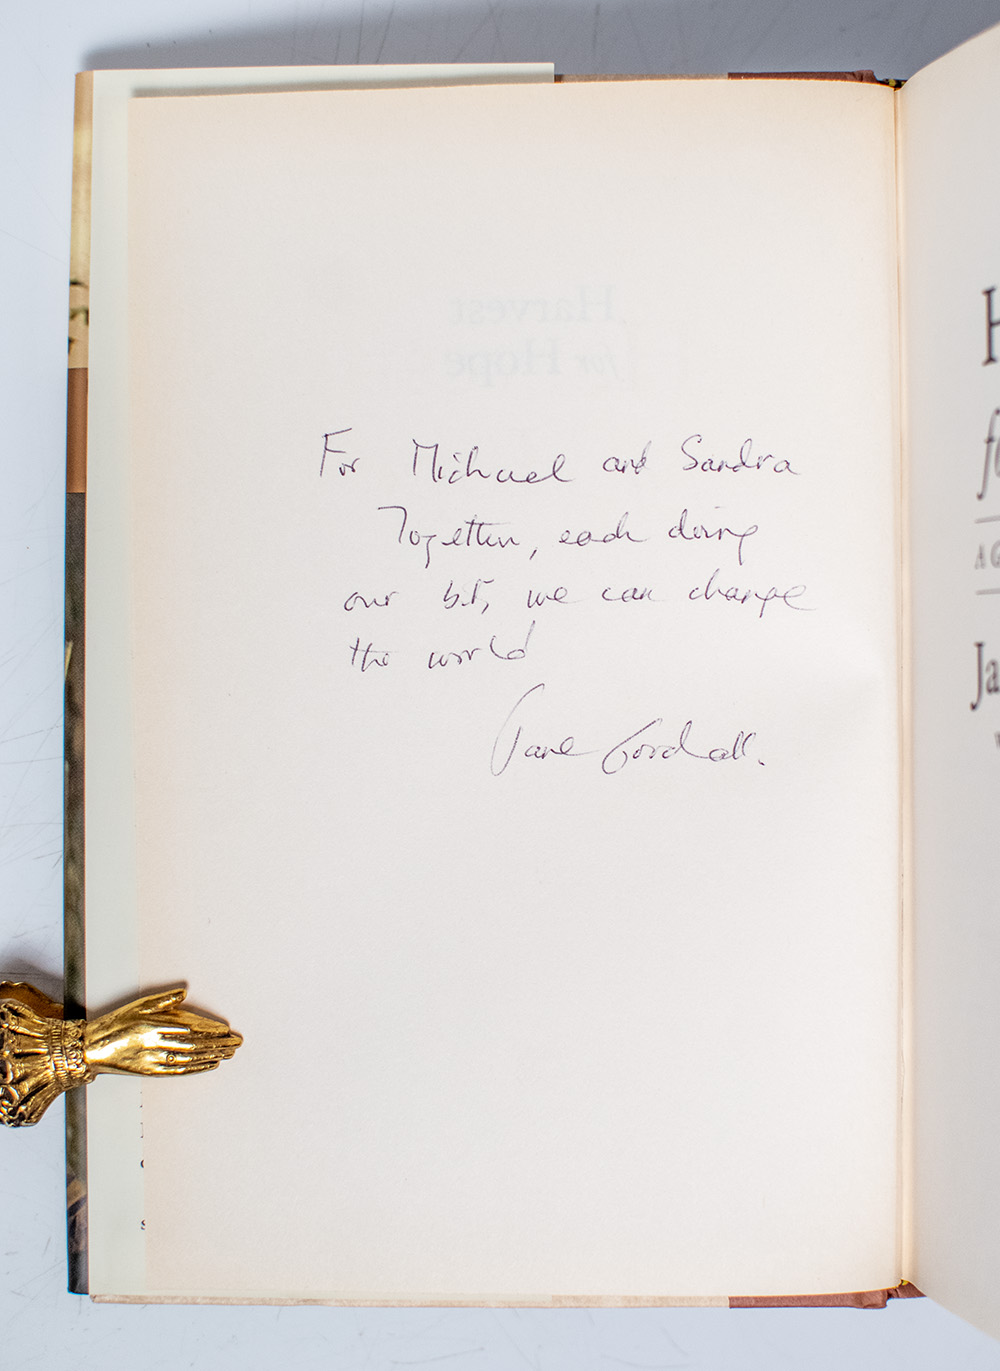 Harvest
for Hope
For Michael and Sandra
Together, each doing
our bit, we can change
the world
Jane Goodall.
H
f
A G
Ja